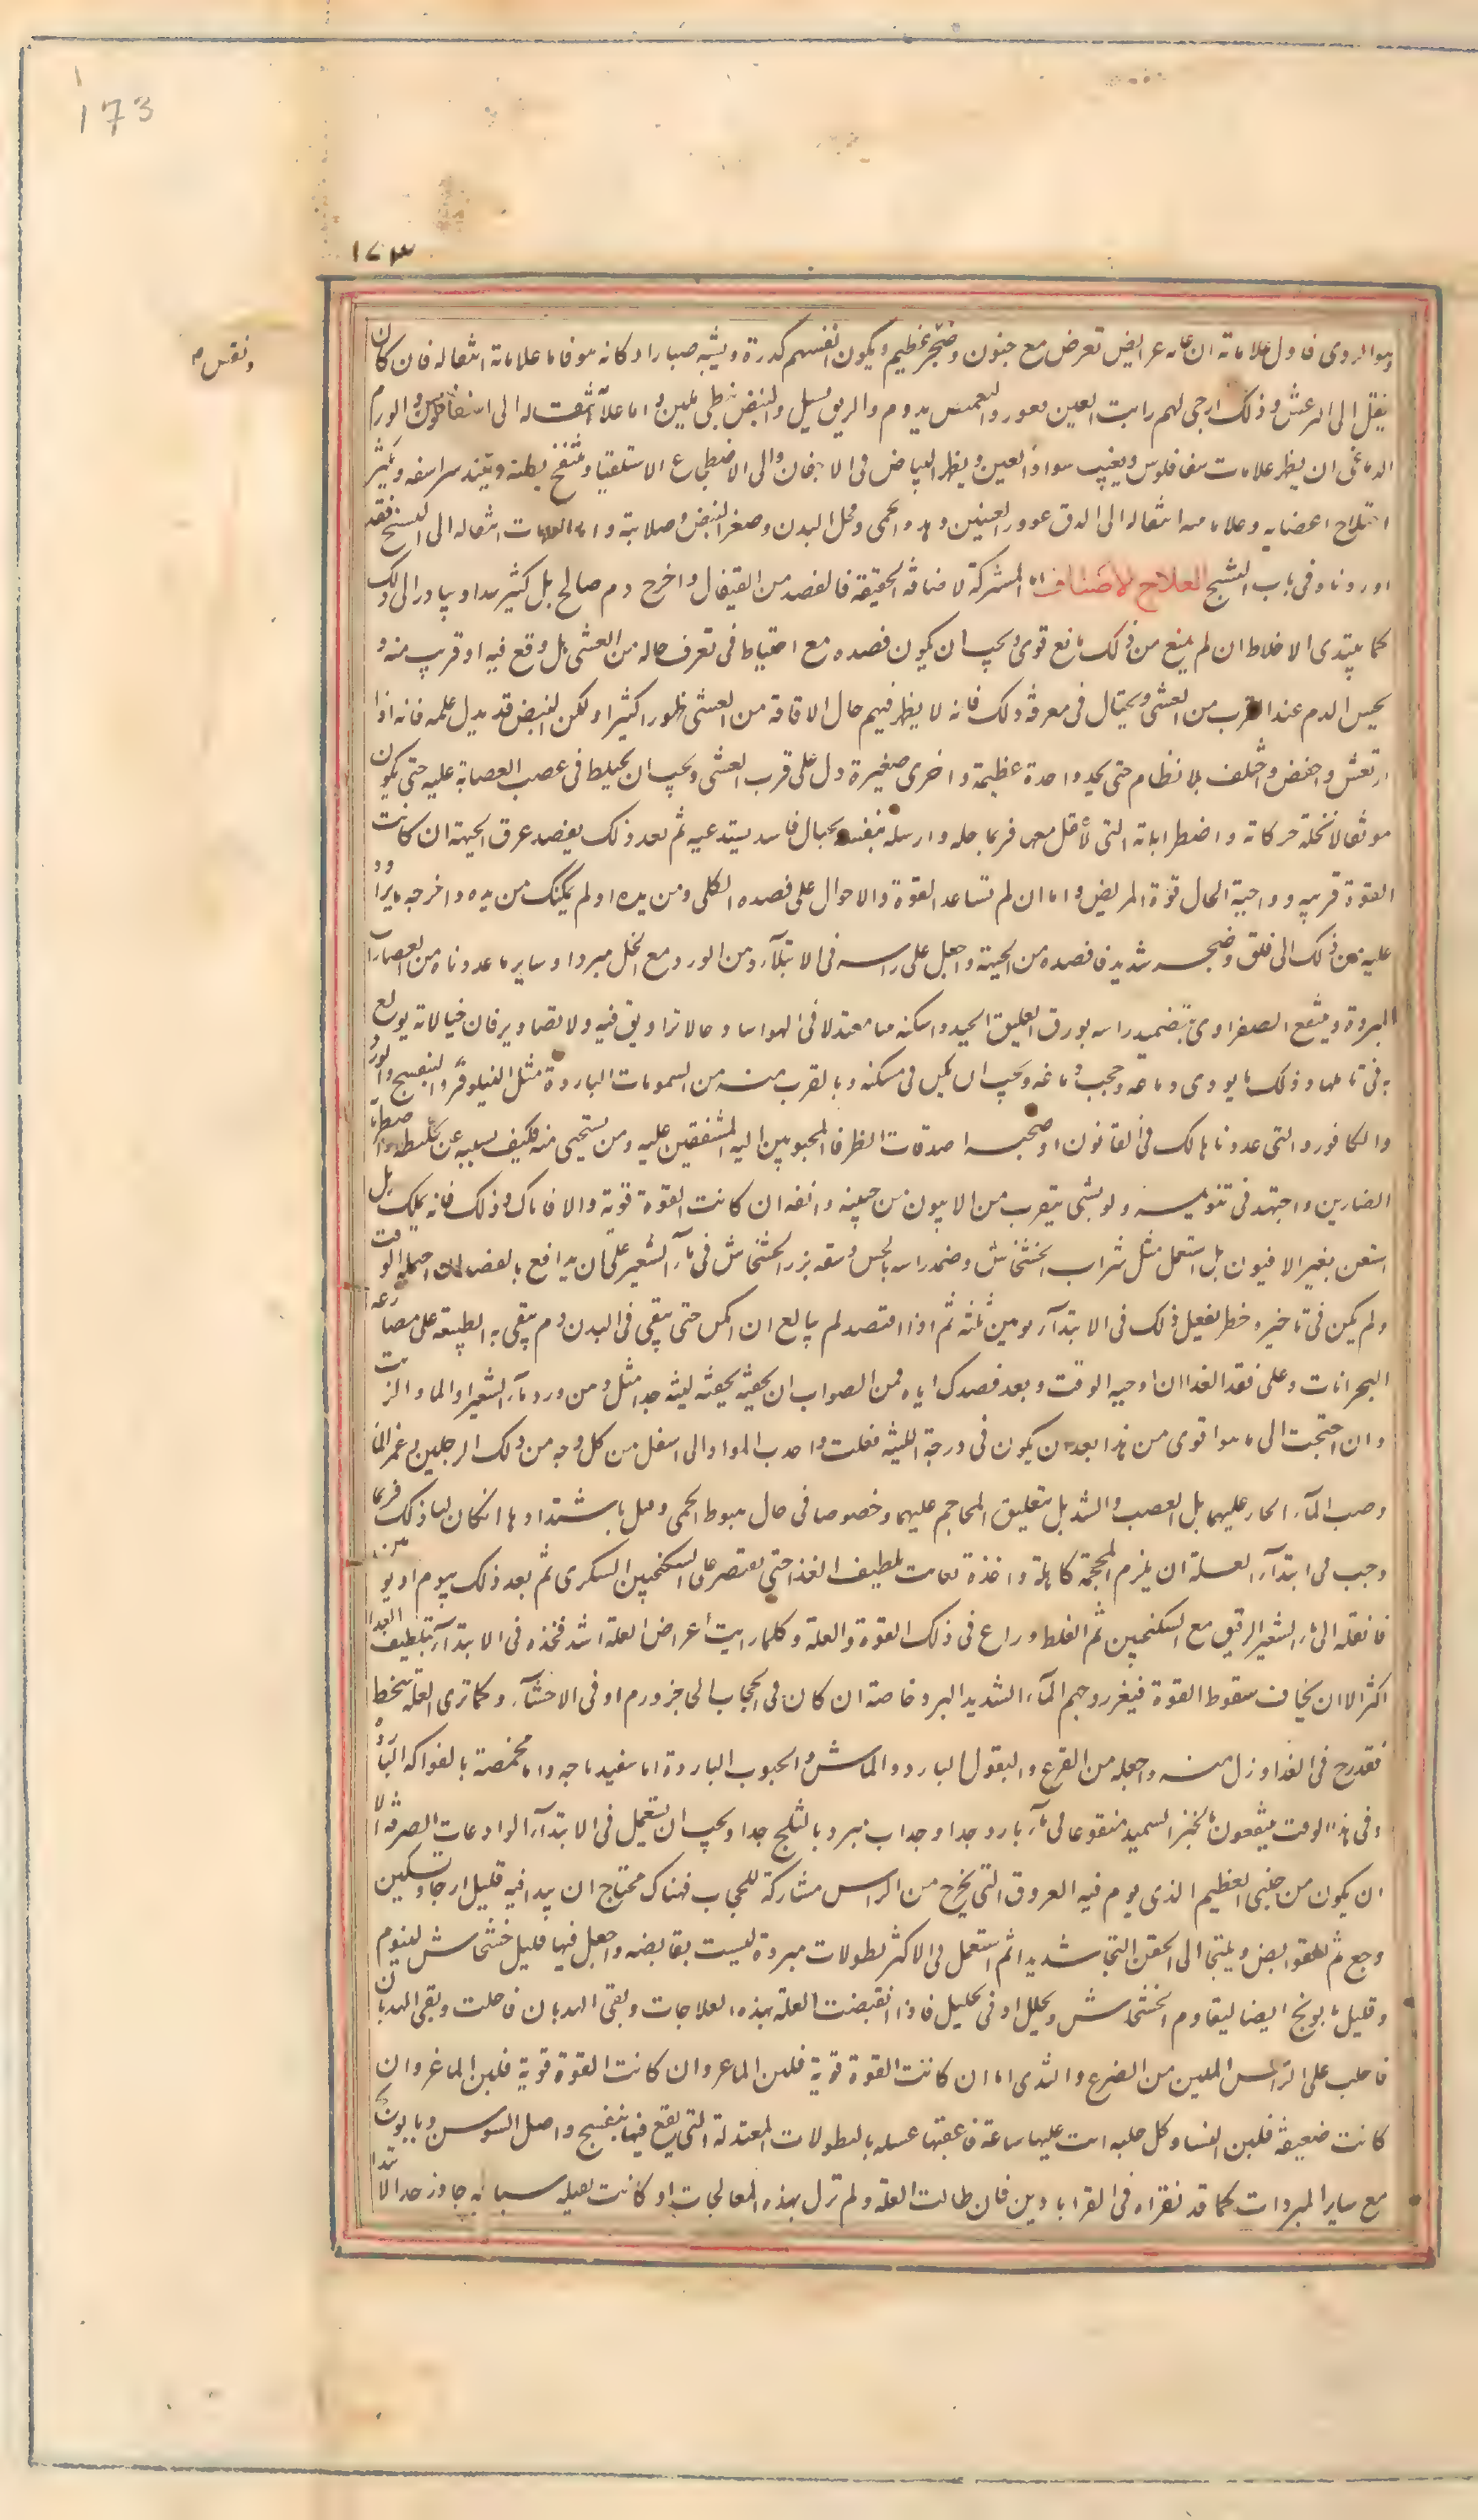 173
١٧٣
ونقس م
وهو الردى فاول علاماته ان عامه عرايض تعرض مع جنون وضجر عظيم ويكون انفسهم كدرة ويشبه صبارا وكانه هو فاما علاماته انتقاله فان كان
ينقل الى الرعش وذلك ارجى لهم رايت العين تعور والتعمص يدوم والريق يسيل والنبض بطى لين واما علا انتقاله الى اسفاقلوس والورم
الدماغى ان يظهر علامات سفافلوس ويغيب سواد العين ويظهر البياض فى الاجفان والى الاضطجاع الاستلقيا وينتفخ بطنه ويتمدد سراسفه ويكثر
اختلاج اعضايه وعلامه انتقاله الى الدق غوور العينين وهدو الحمى وقحل البدن وصغر النبض وصلابته واما العلامات انتقاله الى التشنج فقد
اوردناه فى باب التشنج العلاج لاصناف اما المشركة لاصنافه الحقيقة فالفصد من القيفال واخرج دم صالح بل كثير مدا ويبادر الى ذلك
كما يبتدى الاخلاط ان لم يمنع من ذلك مانع قوى ويجب ان يكون فصده مع احتياط فى تعرف حاله من الغشى هل وقع فيه او قرب منه و
يحبس الدم عند القرب من الغشى ويحتال فى معرفة ذلك فانه لا يظهر فيهم حال الافاقة من الغشى ظهورا كثيرا ولكن النبض قد يدل عليه فانه اذا
ارتعش وانخفض واختلف بلا نظام حتى يجد واحدة عظيمة واخرى صغيرة دل على قرب الغشى ويجب ان يحتاط فى عصب العصابة عليه حتى يكون
موثقا لا تحله حركاته واضطراباته التى لا عقل معها فربما حله وارسله بنفسه بخيال فاسد يستدعيه ثم بعد ذلك يفصد عرق الجبهة ان كانت
القوة قريبه وواجبة الحال قوة المريض واما ان لم تساعد القوة والاحوال على فصده الكلى ومن يده او لم يمكنك من يده واخرجه يرا
عليه من ذلك الى قلق وضجر شديد فافصده من الجبهة واجعل على راسه فى الابتدآء دهن الورد مع الخل مبردا وساير ما عددناه من العصارات
المبردة وينتفع الصفراوى بتضميد راسه بورق العليق الجيد واسكنه بيتا معتدلا فى الهوا ساذجا لا تزاويق فيه ولا تصاوير فان خيالاته يولع
به فى تاملها وذلك مما يوذى دماغه وحجب دماغه ويجب ان يكون فى مسكنه وبالقرب منه من المشمومات الباردة مثل النيلوفر والبنفسج والورد
والكافور والتى عددنا لك فى القانون او صحبه اصدقاء الظرفا المحبوبين اليه المشفقين عليه ومن يستحيى منه فيكف بسببه عن تخليطه واضطرابه
الضارين واجتهد فى تنويمه ولو بشى يتقرب من الافيون من جبينه وانفه ان كانت القوة قوية والا فاياك وذلك فانه يهلك بل
استعن بغير الافيون بل استعمل مثل شراب الخشخاش وضمد راسه بالخس وسقه بزر الخشخاش فى مآء الشعير على ان يدافع بالفصد ان احتمله الوقت
ولم يكن فى تاخيره خطر لفعل ذلك فى الابتدآء يومين ثلثه ثم اذا افتصد لم يبالغ ان امكن حتى يبقى فى البدن دم يبقى به الطبيعة على مصارعة
البحرانات وعلى فقد الغذا ان اوجبه الوقت وبعد فصدك اياه فمن الصواب ان يحقنه بحقنه لينه جدا مثل دهن ورد ومآء الشعير او الماء والزيت
وان احتجت الى ما هو اقوى من هذا بعد ان يكون فى درجة اللينة فعلت واجذب المواد الى اسفل من كل وجه من ذلك الرجلين وغمرالما
وصب المآء الحار عليهما بل العصب والشد بل بتعليق المحاجم عليهما وخصوصا فى حال هبوط الحمى وقبل باشتدادها ان كان لها ذلك فربما
وجب فى ابتدآء العلة ان يلزم المحجمة كاهله واخذه بغايت تلطيف الغذا حتى يقتصر على السكنجبين السكرى ثم بعد ذلك بيوم او يومين
فانقله الى مآء الشعير الرقيق مع السكنجبين ثم الغليظ وراع فى ذلك القوة والعلة وكلما رايت اعراض العلة اشد فخذه فى الابتدآء بتلطيف الغذا
اكثر الا ان يخاف سقوط القوة فيغرر وجهم المآء الشديد البرد خاصة ان كان فى الحجاب الحاجز ورم او فى الاحشآء وكما ترى العلة ينحط
فقدرج فى الغذا وزل منه واجعله من القرع والبقول الباردة والماش والحبوب الباردة اما سفيدباجه واما محمضة بالفواكه الباردة
وفى هذا الوقت ينتفعون بخبز السميد منقوعا فى مآء بارد جدا وجداب مبرد بالثلج جدا ويجب ان يستعمل فى الابتدآء الرادعات الصرفة الا
ان يكون من جنبى العظيم الذى يوم فيه العروق التى يخرج من الراس مشاركة للحجاب فهناك محتاج ان يبدا فيه قليل ارخا وتسكين
وجع ثم للقوابض ويلتجا الى الحقن التجا شديدا ثم استعمل فى الاكثر نطولات مبردة ليست بقابضه واجعل فيها قليل خشخاش لينوم
وقليل بابونج ايضا ليقاوم الخشخاش ويحلل ادنى تحليل فاذا انقضت العلة بهذه العلاجات وبقى الهذيان فاحلت وبقى الهذيان
فاحلب على الراس اللبن من الضرع والثدى اما ان كانت القوة قوية فلبن الماعز وان كانت القوة قوية فلبن الماعز وان
كانت ضعيفة فلبن النسا وكل حلبه اتت عليها ساعة فاعقبها غسله بالنطولات المعتدلة التى يقع فيها بنفسج واصل السوسن وبابونج
مع ساير المبردات كما قد نقراه فى القراباذين فان طالت العلة ولم تزل بهذه المعالجات او كانت ثقيله سباتيه جاوز حد الابتدا